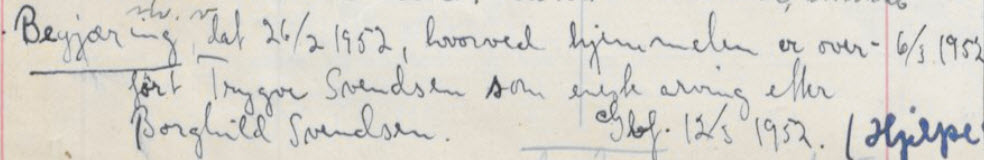 Begjæring, dat 26/2 1952, hvorved hjemmelen er over- 6/3 1952
ført Trygve Svendsen som eneste arving efter
Borghild Svendsen. Gbf. 12/3 1952. (Hjelpe